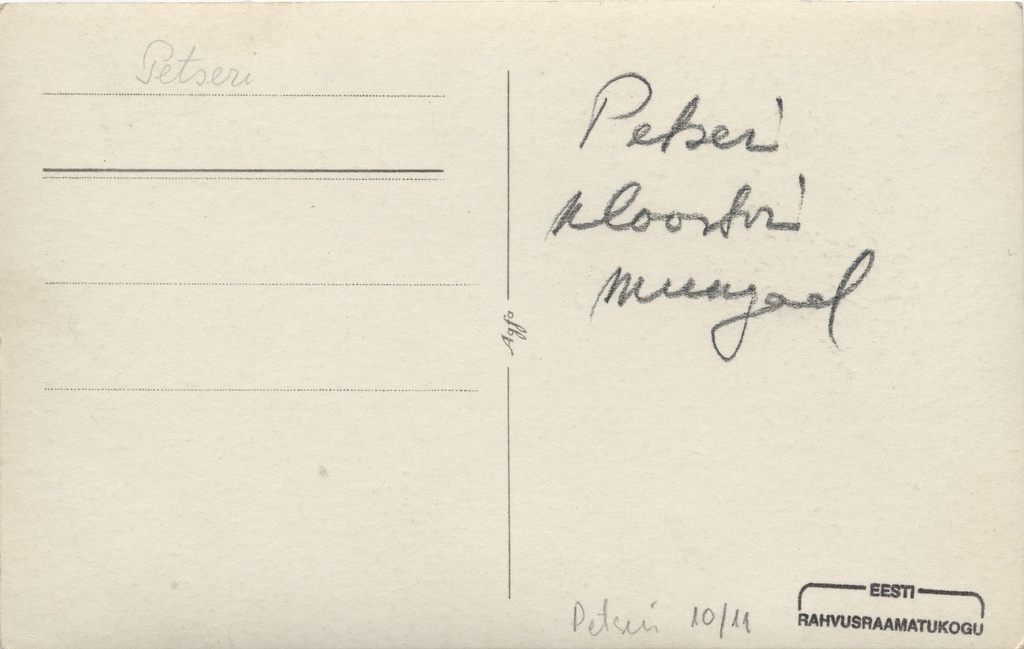 Petseri
Petseri
kloostri
mungad
Petseri 10/11
EESTI
RAHVUSRAAMATUKOGU